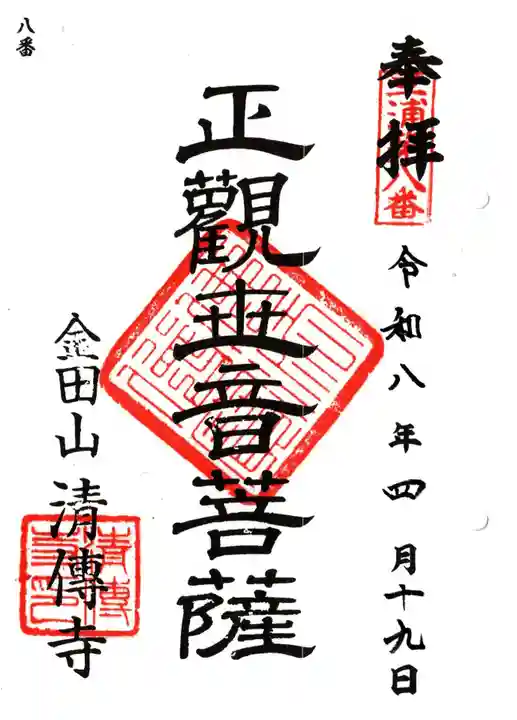 奉拝
三浦八番
令和八年四月十九日
正觀世音菩薩
金田山清傳寺
八番